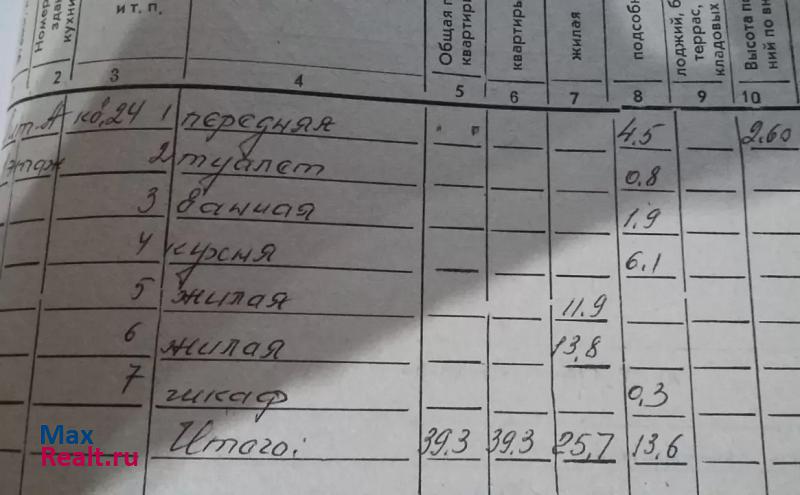 Номер
здан
кухни
и т. п.
Общая п
квартиры
квартиры
жилая
подсобн
лоджий, б
террас,
кладовых
Высота по
ний по вн
2 3 4 5 6 7 8 9 10
лит. А кв. 24 1 передняя 4.5 2.60
этаж 2 туалет 0.8
3 ванная 1.9
4 кухня 6.1
5 жилая 11.9
6 жилая 13,8
7 шкаф 0,3
Итого: 39.3 39.3 25,7 13,6
Max
Realt.ru